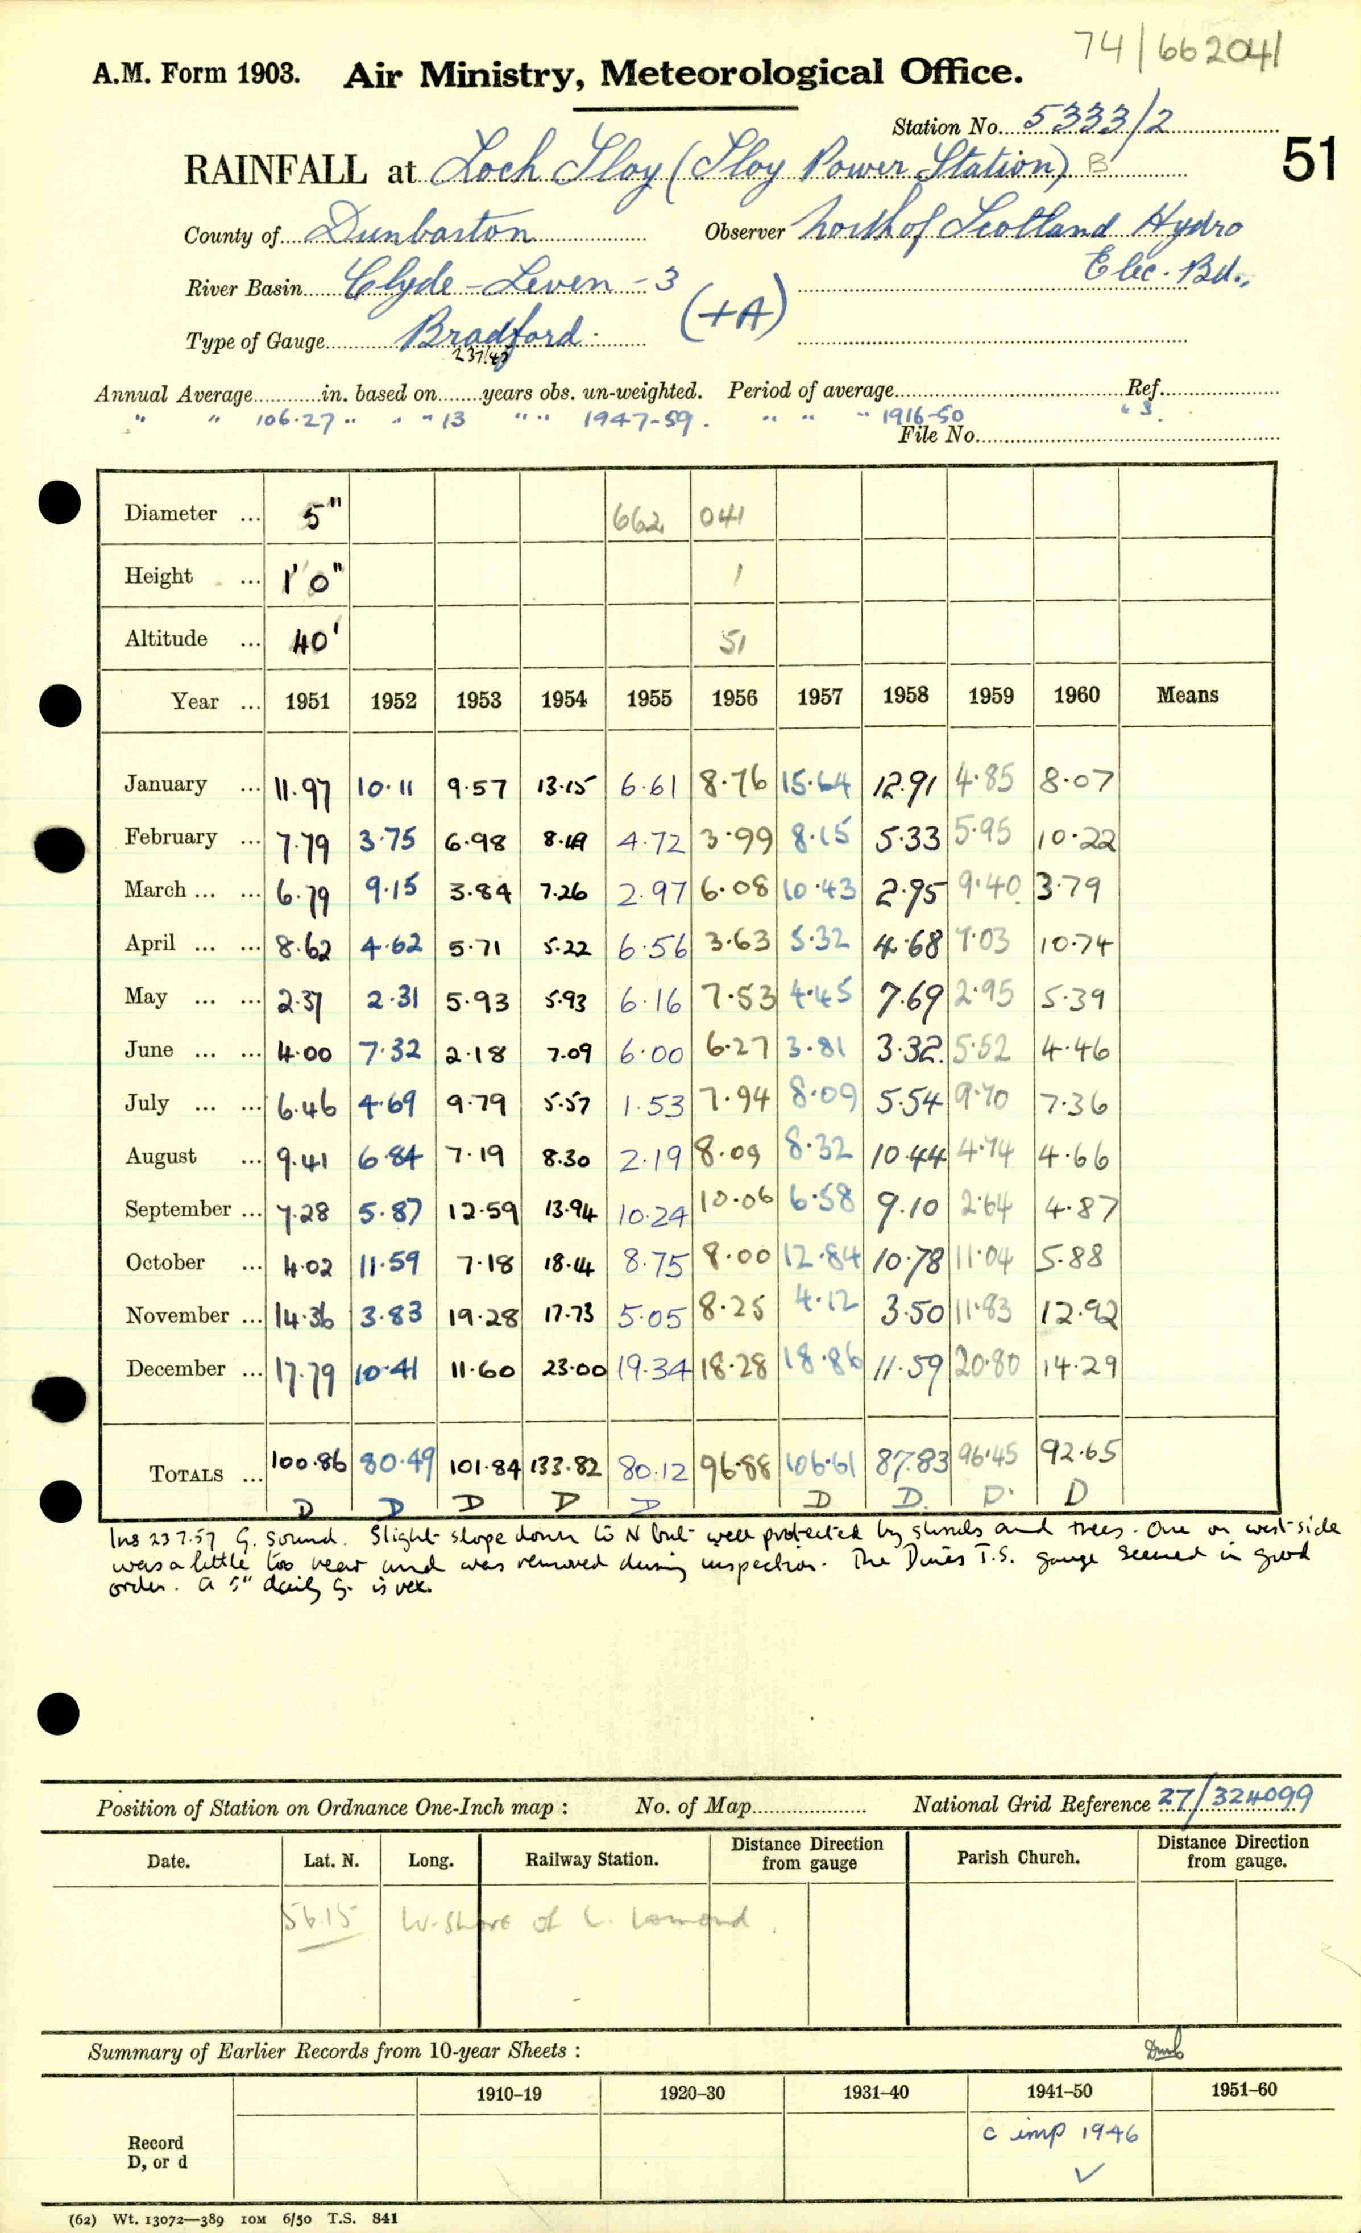 74/662041
A.M. Form 1903. Air Ministry, Meteorological Office.
Station No. 5333/2
RAINFALL at Loch Sloy (Sloy Power Station) B
51
County of Dunbarton Observer North of Scotland Hydro
River Basin Clyde-Leven-3 Elec. Bd.,
(+A)
Type of Gauge Bradford
237/47
Annual Average in. based on years obs. un-weighted. Period of average Ref.
" " 106.27 " " " 13 " " 1947-59. " " " 1916-50 " 3.
File No.
Diameter ... 5" 662 041
Height ... 1' 0" 1
Altitude ... 40' 51
Year ... 1951 1952 1953 1954 1955 1956 1957 1958 1959 1960 Means
January ... 11.97 10.11 9.57 13.15 6.61 8.76 15.64 12.91 4.85 8.07
February ... 7.79 3.75 6.98 8.49 4.72 3.99 8.15 5.33 5.95 10.22
March ... ... 6.79 9.15 3.84 7.26 2.97 6.08 10.43 2.95 9.40 3.79
April ... ... 8.62 4.62 5.71 5.22 6.56 3.63 5.32 4.68 7.03 10.74
May ... ... 2.37 2.31 5.93 5.93 6.16 7.53 4.45 7.69 2.95 5.39
June ... ... 4.00 7.32 2.18 7.09 6.00 6.27 3.81 3.32 5.52 4.46
July ... ... 6.46 4.69 9.79 5.57 1.53 7.94 8.09 5.54 9.70 7.36
August ... 9.41 6.84 7.19 8.30 2.19 8.09 8.32 10.44 4.74 4.66
September ... 7.28 5.87 12.59 13.94 10.24 10.06 6.58 9.10 2.64 4.87
October ... 4.02 11.59 7.18 18.14 8.75 8.00 12.84 10.78 11.04 5.88
November ... 14.36 3.83 19.28 17.73 5.05 8.25 4.12 3.50 11.83 12.92
December ... 17.79 10.41 11.60 23.00 19.34 18.28 18.86 11.59 20.80 14.29
TOTALS ... 100.86 80.49 101.84 133.82 80.12 96.88 106.61 87.83 96.45 92.65
D D D D D D D. D. D
Ins 23.7.57 G. sound. Slight slope down to N but well protected by shrubs and trees. One on west side
was a little too near and was removed during inspection. The Dines T.S. gauge seemed in good
order. A 5" daily G. is
Position of Station on Ordnance One-Inch map : No. of Map National Grid Reference 27/324099
Date. Lat. N. Long. Railway Station. Distance Direction from gauge Parish Church. Distance Direction from gauge.
56.15 W. Shore of L. Lomond.
Summary of Earlier Records from 10-year Sheets :
1910-19 1920-30 1931-40 1941-50 1951-60
Record
D, or d
c imp 1946
✓
(62) Wt. 13072—389 10M 6/50 T.S. 841